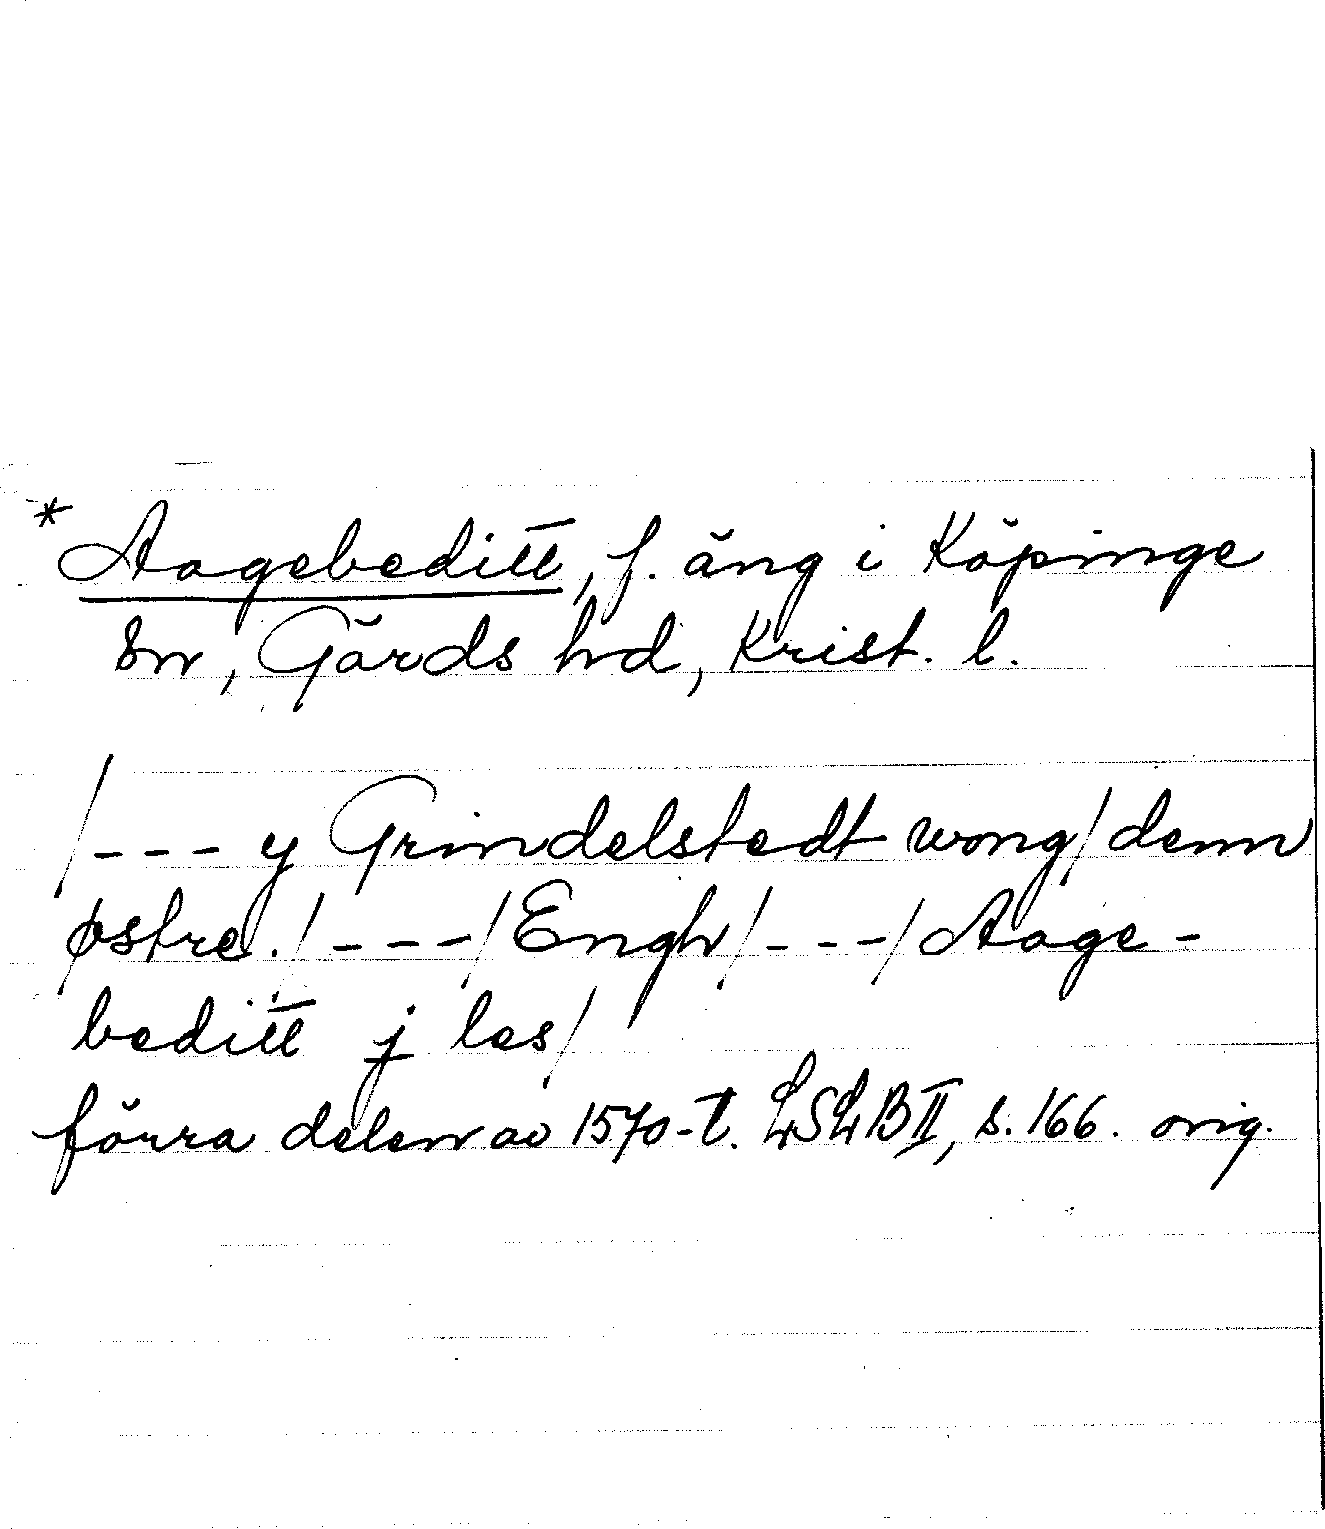 * Aagebeditt, f. äng i Köpinge
sn, Gärds hd, Krist. l.
/--- y Grindelstedt wong/ denn
østre./ ---/ Engh/ ---/ Aage-
beditt j les/
förra delen av 1570-t. LSLB II, s. 166. orig.